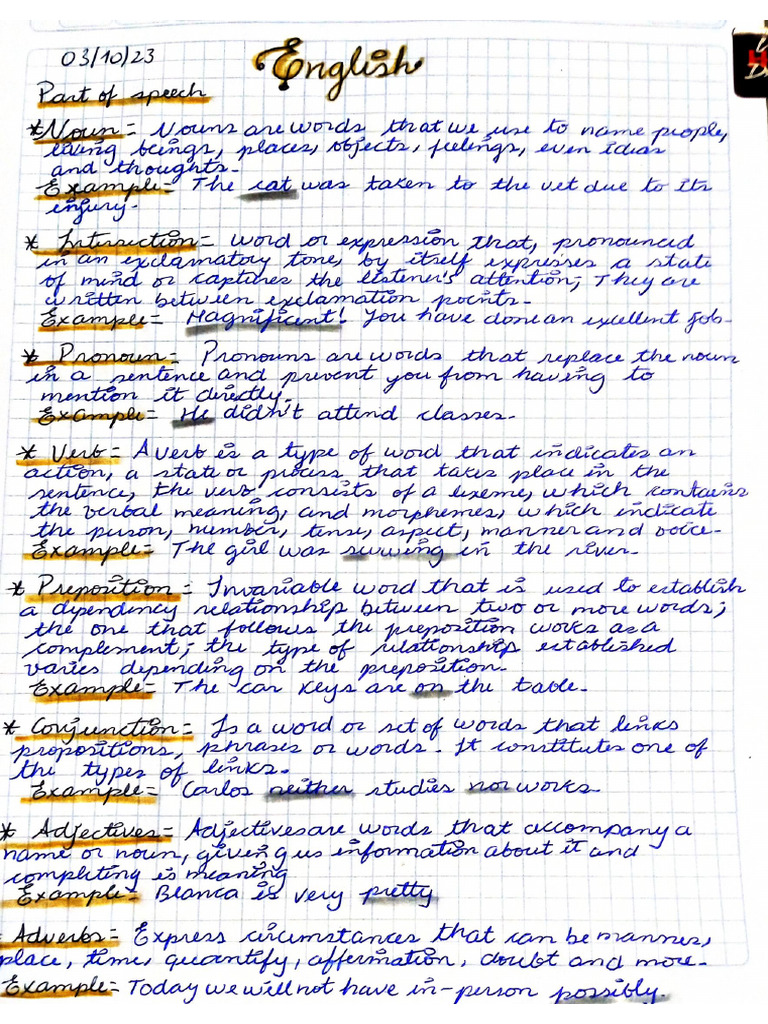 03/10/23
English
Part of speech
*Noun= Nouns are words that we use to name people,
living beings, places, objects, feelings, even ideas
and thoughts-
Example= The cat was taken to the vet due to its
injury.
* Intersection= word or expression that, pronounced
in an exclamatory tone, by itself expresses a state
of mind or captures the listener's attention; They are
written between exclamation points-
Example= Magnificent! You have done an excellent job-
* Pronoun= Pronouns are words that replace the noun
in a sentence and prevent you from having to
mention it directly.
Example= He didn't attend classes.
* Verb= A verb is a type of word that indicates an
action, a state or process that takes place in the
sentence, the verb consists of a lexeme, which contains
the verbal meaning, and morphemes, which indicate
the person, number, tense, aspect, manner and voice-
Example= The girl was in the river-
* Preposition= Invariable word that is used to establish
a dependency relationship between two or more words;
the one that follows the preposition works as a
complement; the type of relationship established
varies depending on the preposition-
Example= The car keys are on the table-
* Conjunction= Is a word or set of words that links
propositions, phrases or words- It constitutes one of
the types of links.
Example= Carlos neither studies nor works
* Adjectives= Adjectives are words that accompany a
name or noun, giving us information about it and
completing is meaning
Example= Blanca is very pretty
Adverbs= Express circumstances that can be manner,
place, time, quantify, affirmation, doubt and more-
Example= Today we will not have in-person possibly.